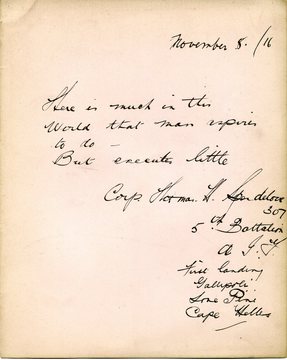 November 8. /16
There is much in this
World that man aspires
to do -
But executes little
Corp Thomas W. Spendelove
307
5th Battalion
A I F
First landing
Gallipoli
Lone Pine
Cape Helles